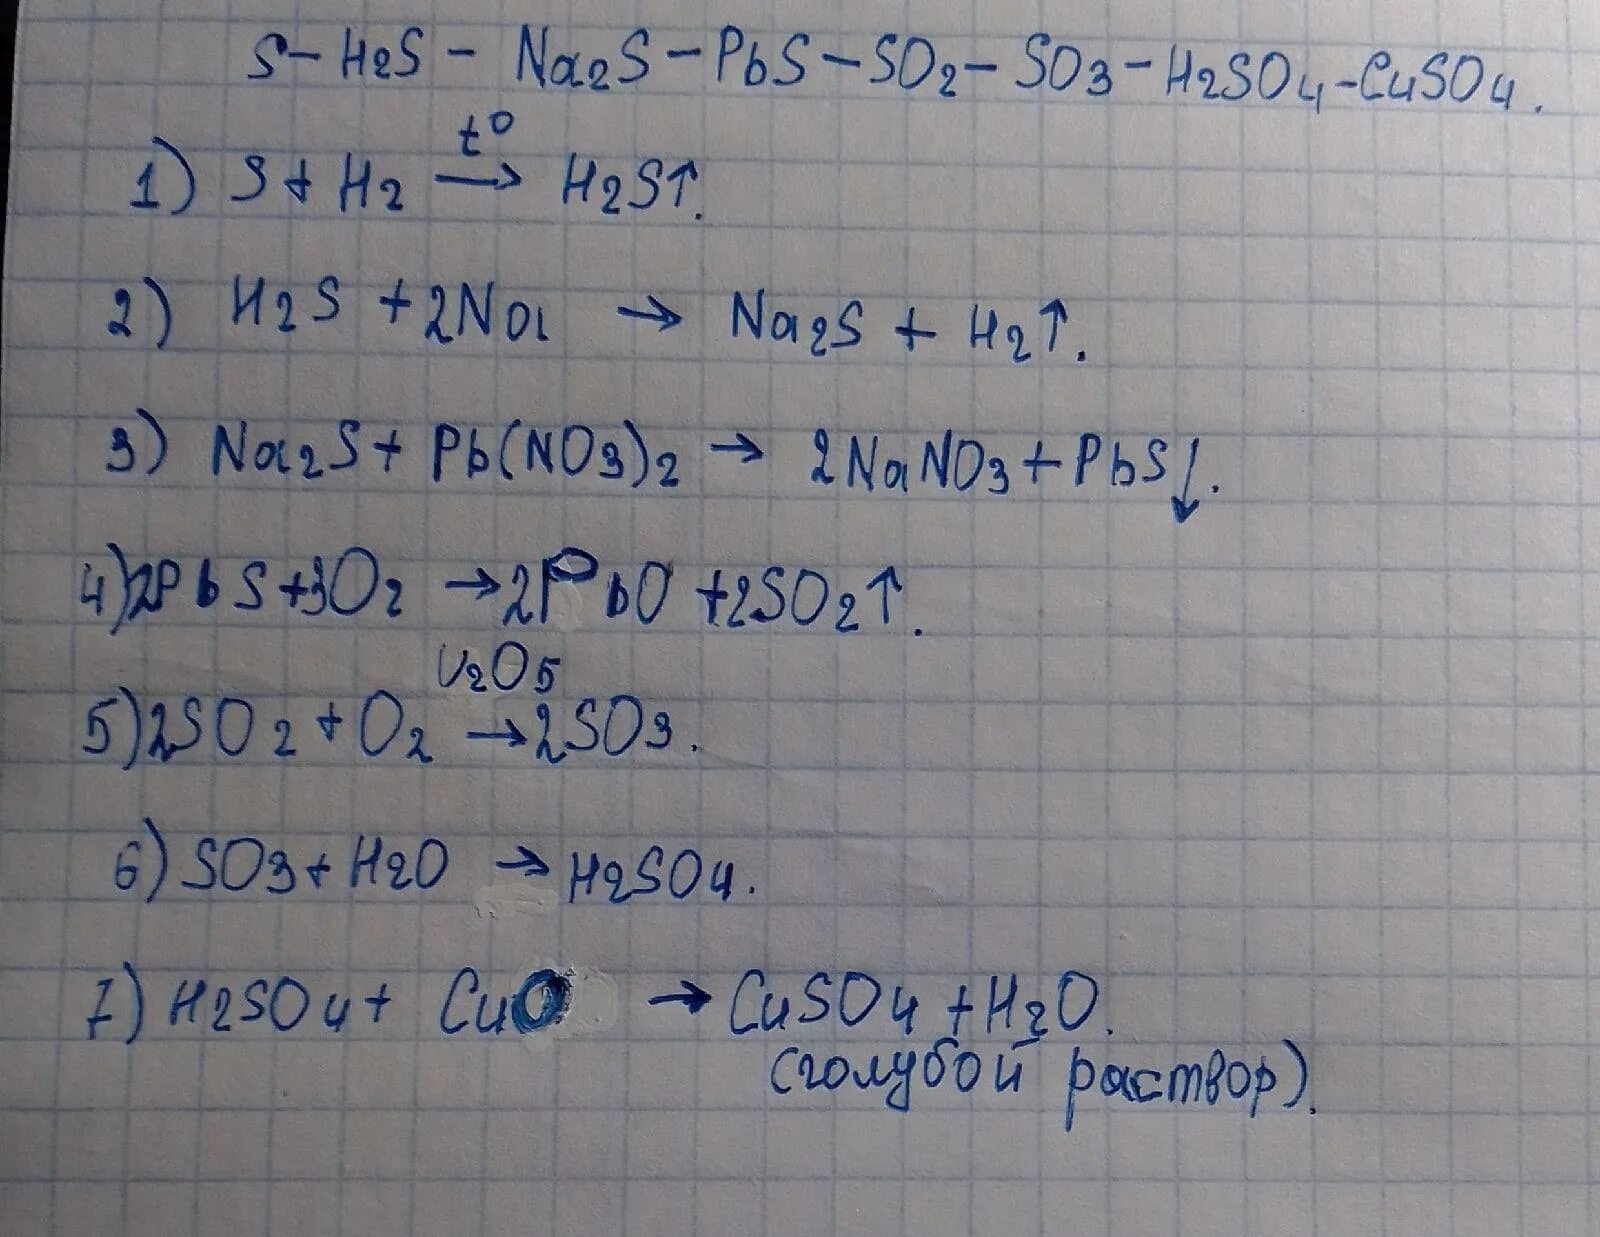 S – H2S – Na2S – PbS – SO2 – SO3 – H2SO4 – CuSO4.
1) S + H2 t° → H2S↑.
2) H2S + 2Na → Na2S + H2↑.
3) Na2S + Pb(NO3)2 → 2NaNO3 + PbS↓.
4) 2PbS + 3O2 → 2PbO + 2SO2↑.
V2O5
5) 2SO2 + O2 → 2SO3.
6) SO3 + H2O → H2SO4.
7) H2SO4 + CuO → CuSO4 + H2O.
(голубой раствор).